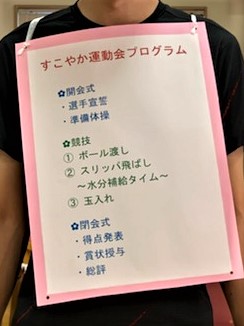 すこやか運動会プログラム
✿開会式
・選手宣誓
・準備体操
✿競技
① ボール渡し
② スリッパ飛ばし
～水分補給タイム～
③ 玉入れ
✿閉会式
・得点発表
・賞状授与
・総評